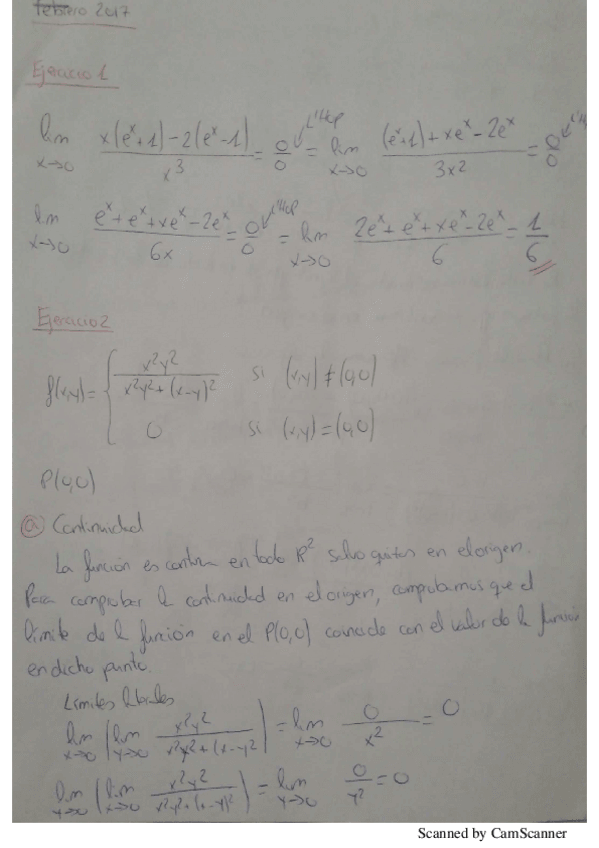 febrero 2017
Ejercicio 1
lim x→0 x(e^x+1)-2(e^x-1) / x^3 = 0/0 L'Hop = lim x→0 (e^x+1)+xe^x-2e^x / 3x^2 = 0/0 L'H
lim x→0 e^x+e^x+xe^x-2e^x / 6x = 0/0 L'Hop = lim x→0 2e^x+e^x+xe^x-2e^x / 6 = 1/6
Ejercicio 2
f(x,y) = { x^2y^2 / x^2y^2+(x-y)^2 si (x,y)≠(0,0)
0 si (x,y)=(0,0)
P(0,0)
a) Continuidad
La función es continua en todo R^2 salvo quizás en el origen.
Para comprobar la continuidad en el origen, comprobamos que el
límite de la función en el P(0,0) coincide con el valor de la función
en dicho punto.
Límites
lim x→0 (lim y→0 x^2y^2 / x^2y^2+(x-y^2) ) = lim x→0 0 / x^2 = 0
lim y→0 (lim x→0 x^2y^2 / x^2y^2+(x-y)^2 ) = lim y→0 0 / y^2 = 0
Scanned by CamScanner